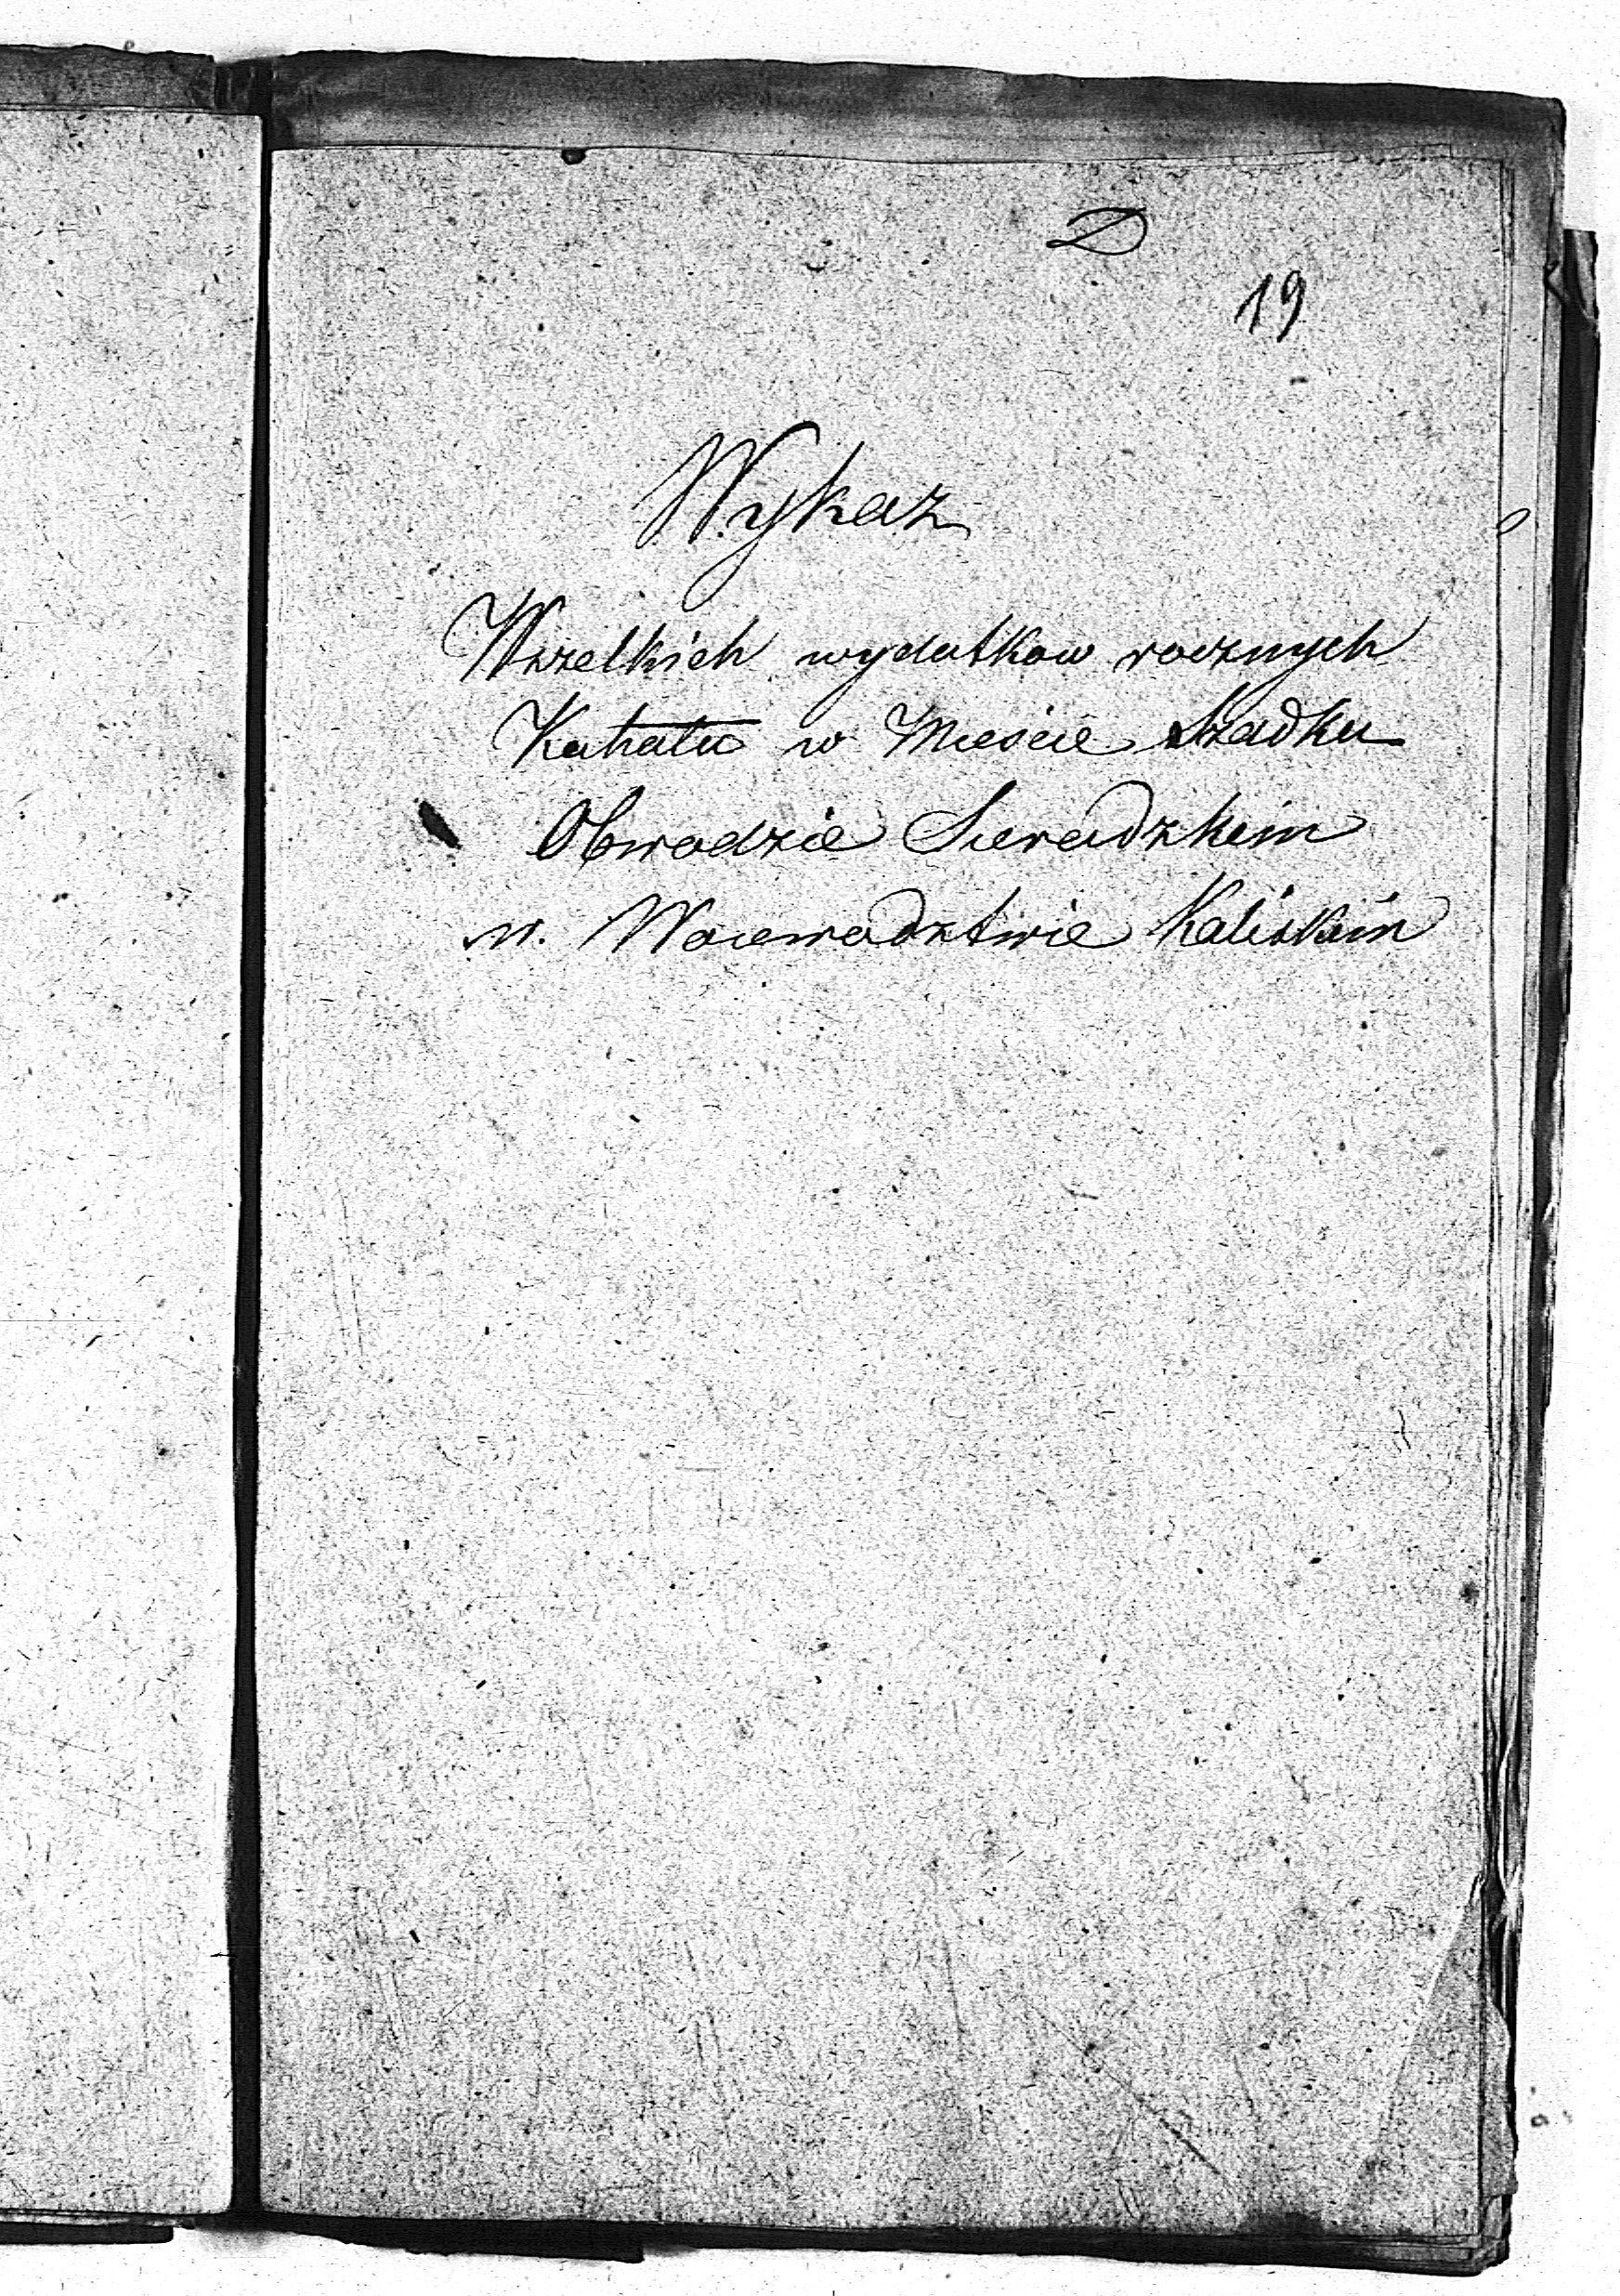 D
19
Wykaz
Wszelkich wydatkow rocznych
Kahału w Mieście Szadku
Obwodzie Sieradzkim
w. Woiewodztwie Kaliskim